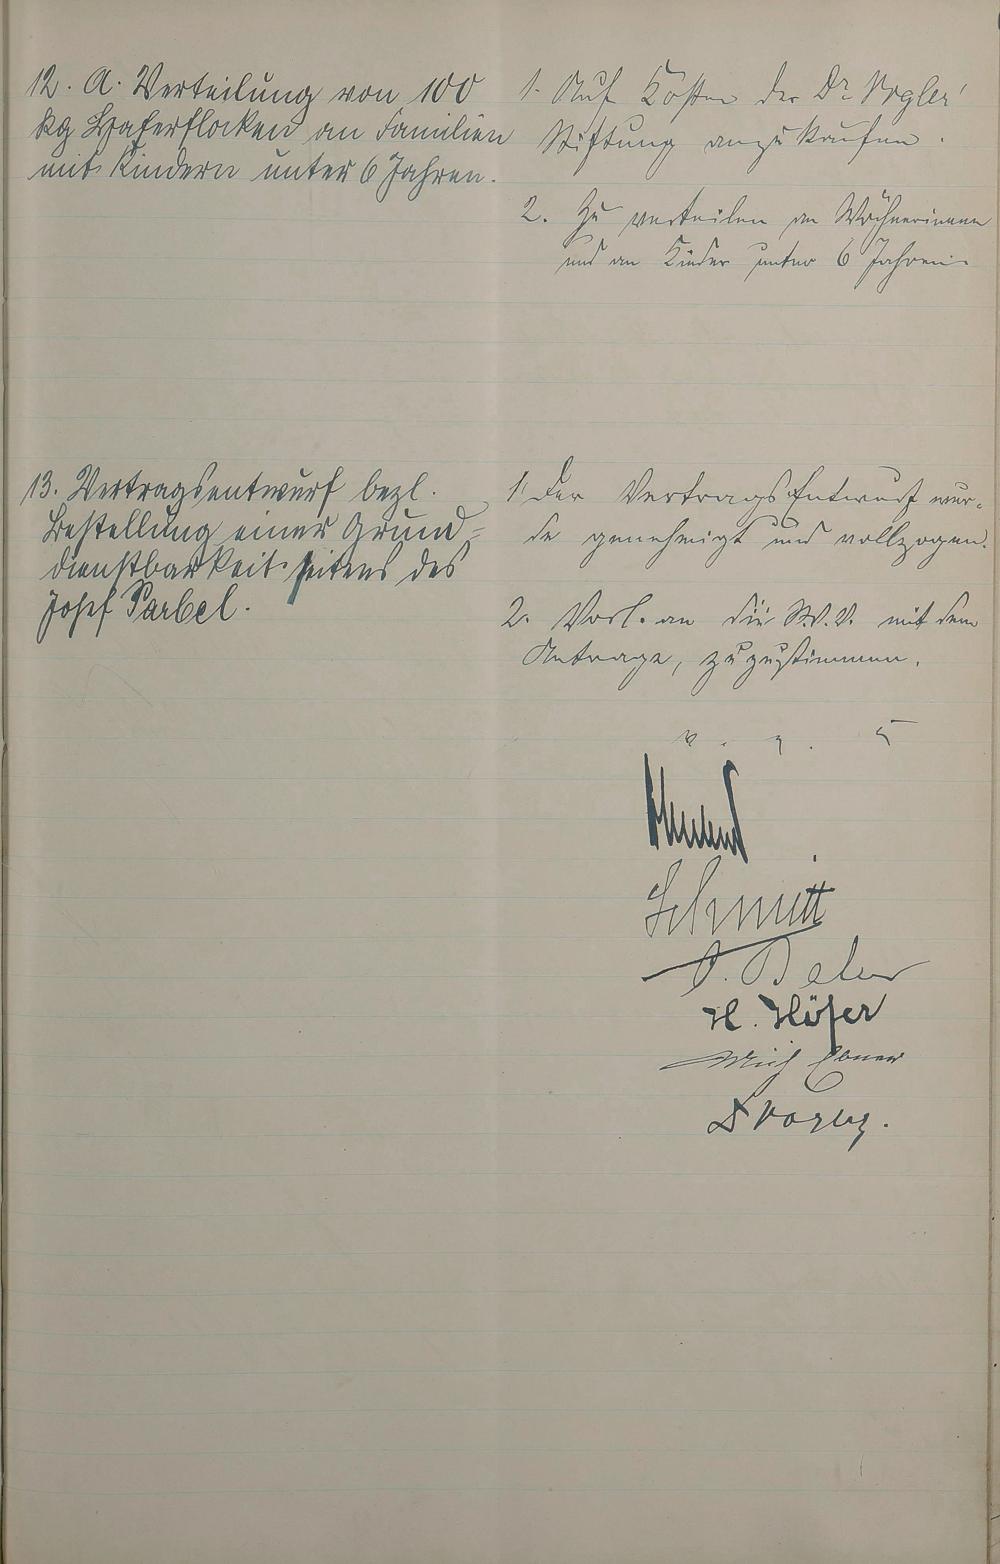 12. A. Verteilung von 100
kg Haferflocken an Familien
mit Kindern unter 6 Jahren.
1. Auf Kosten der Dr. Vogler'
Stiftung anzukaufen.
2. Zu verteilen an Wöchnerinnen
und an Kinder unter 6 Jahren.
13. Vertragsentwurf bezl.
Bestellung einer Grund-
dienstbarkeit seitens des
Josef Parbel.
1. Der Vertrags Entwurf wur-
de genehmigt und vollzogen.
2. Vorl. an die St.V.V. mit dem
Antrage, zuzustimmen.
Schmitt
H. Höfer